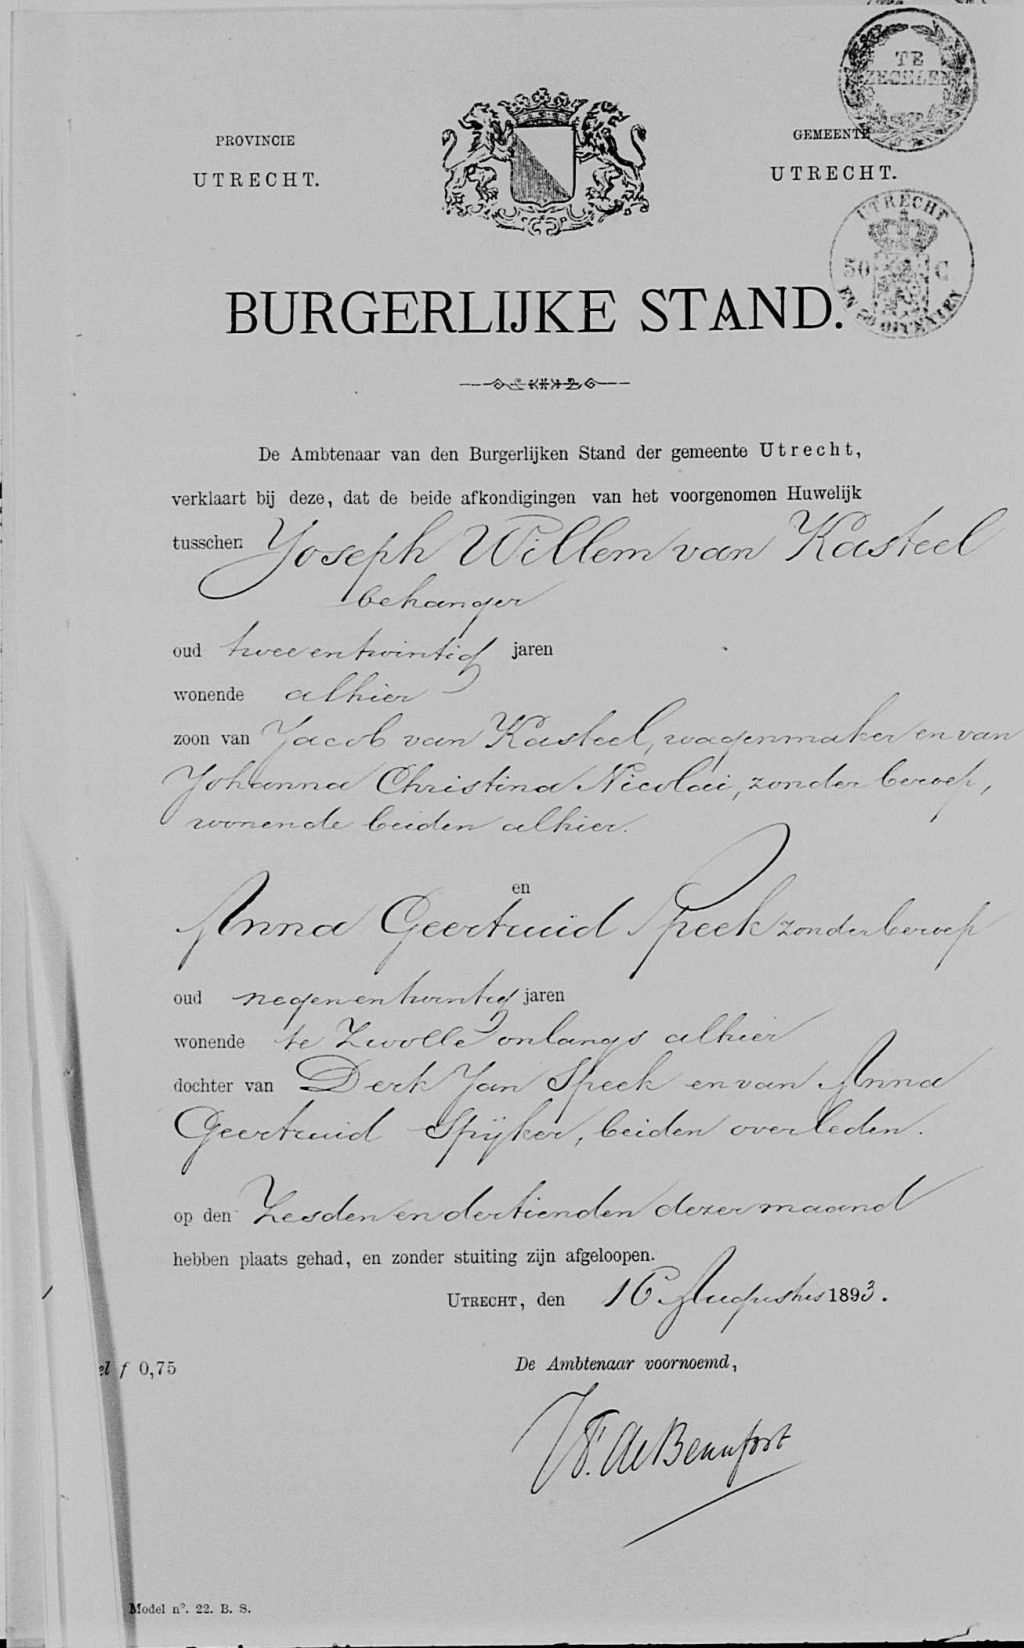 PROVINCIE
UTRECHT.
GEMEENTE
UTRECHT.
TE
ZEGELEN
UTRECHT
50 C.
BURGERLIJKE STAND.
De Ambtenaar van den Burgerlijken Stand der gemeente Utrecht,
verklaart bij deze, dat de beide afkondigingen van het voorgenomen Huwelijk
tusschen Joseph Willem van Kasteel
behanger
oud twee en twintig jaren
wonende alhier
zoon van Jacob van Kasteel, wagenmaker en van
Johanna Christina Nicolai, zonder beroep,
wonende beiden alhier.
en
Anna Geertruid Speek zonder beroep
oud negen en twintig jaren
wonende te Zwolle onlangs alhier
dochter van Derk Jan Speek en van Anna
Geertruid Spijker, beiden overleden.
op den Zesden en dertienden dezer maand
hebben plaats gehad, en zonder stuiting zijn afgeloopen.
UTRECHT, den 16 Augustus 1893.
f 0,75
De Ambtenaar voornoemd,
de Beaufort
Model nº. 22. B. S.